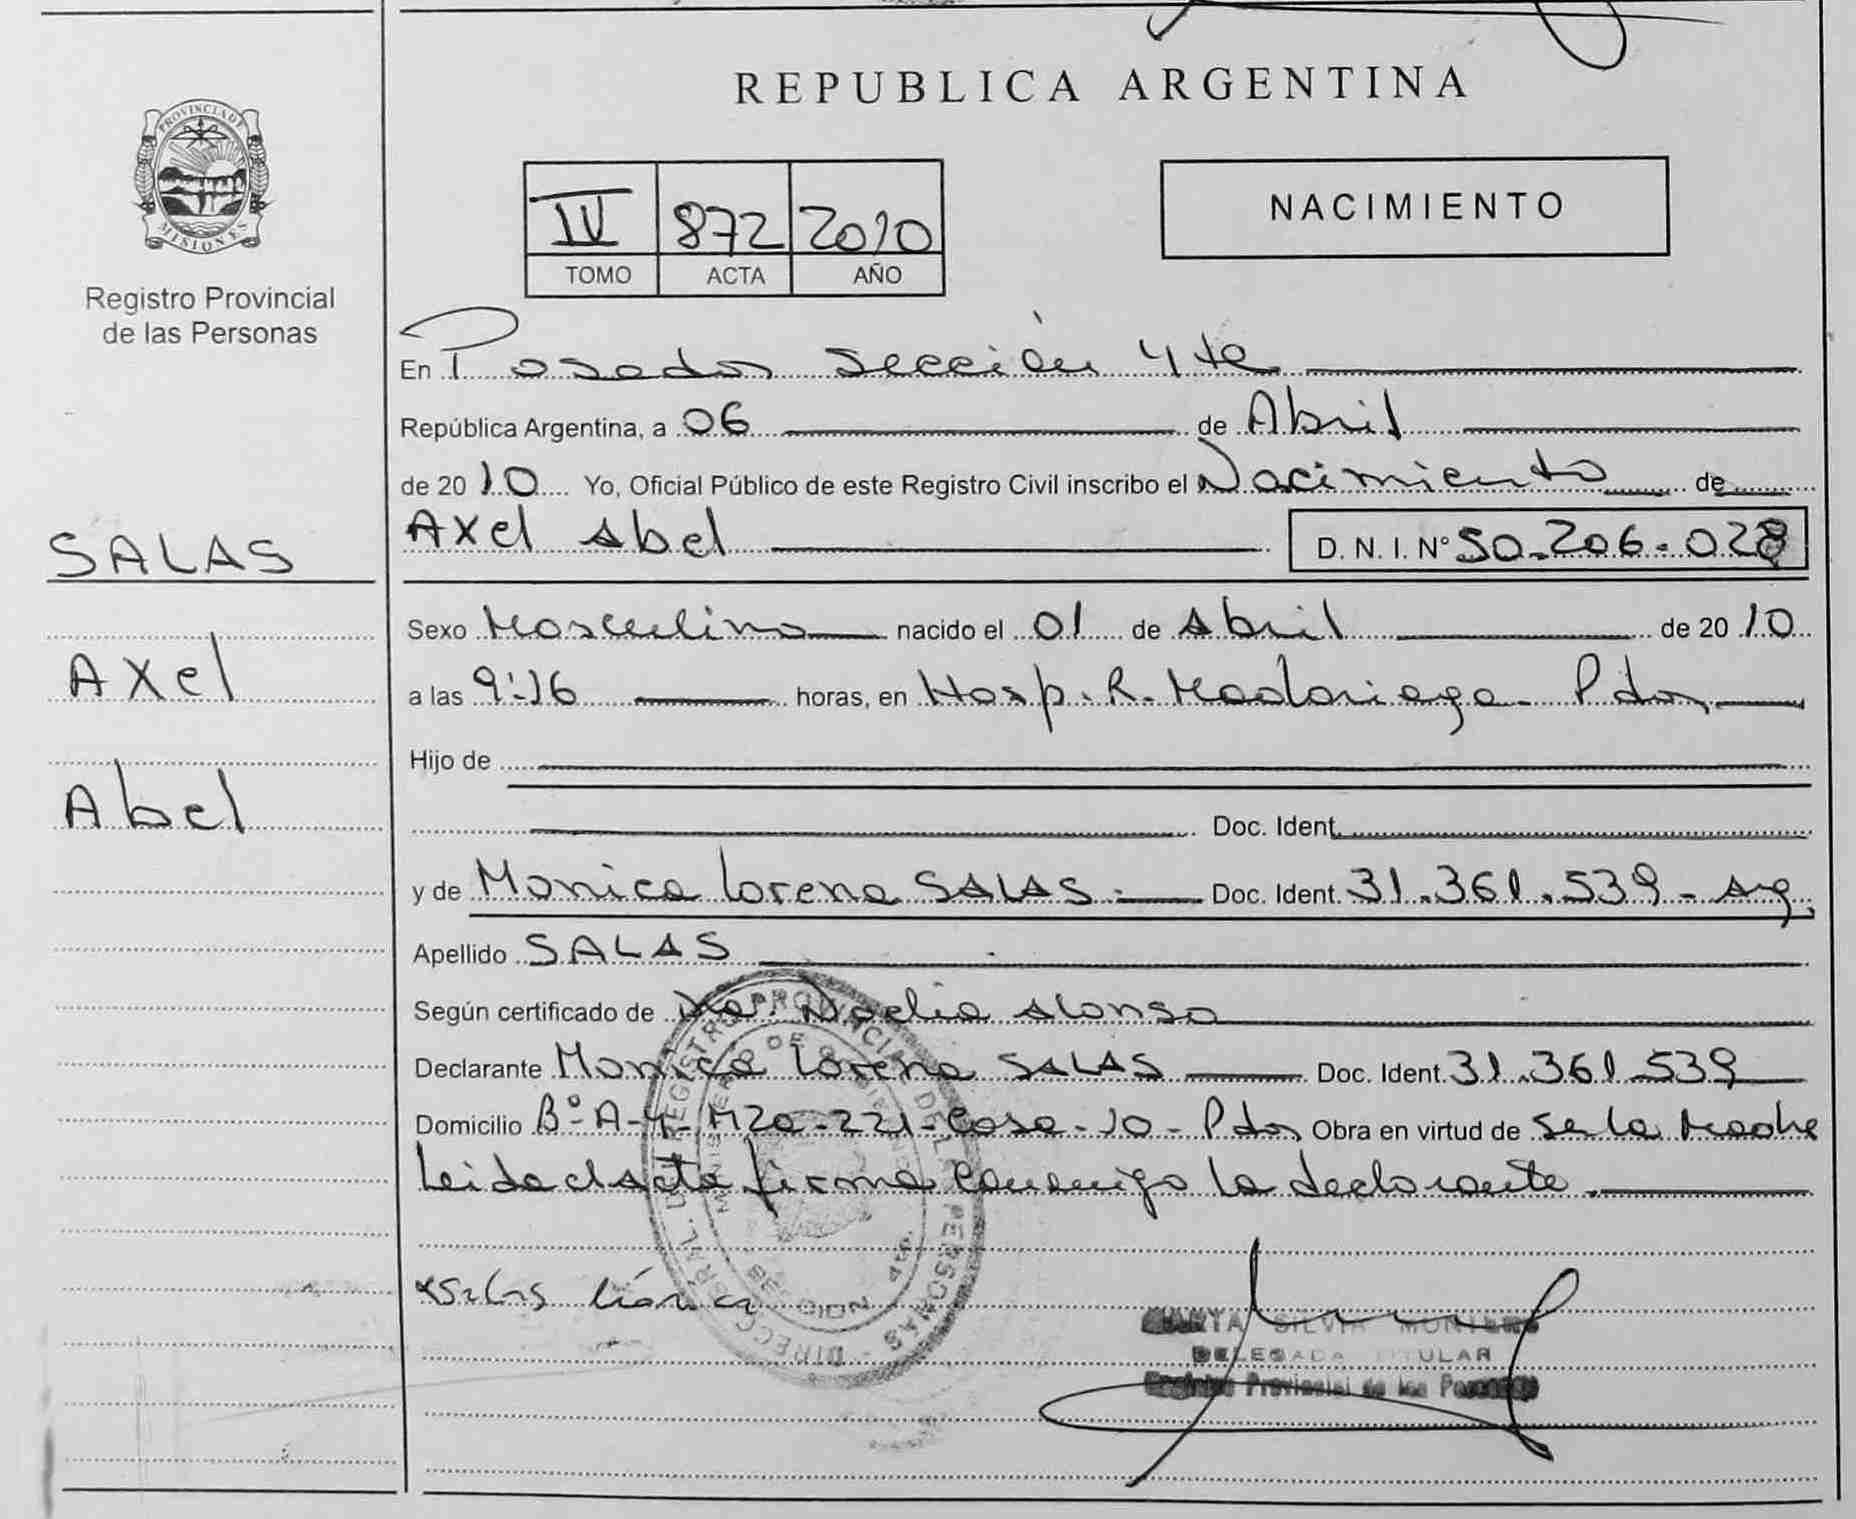 REPUBLICA ARGENTINA
PROVINCIA DE
MISIONES
Registro Provincial
de las Personas
IV 872 2010
TOMO ACTA AÑO
NACIMIENTO
En Posadas sección 4ta
República Argentina, a 06 de Abril
de 20 10 Yo, Oficial Público de este Registro Civil inscribo el Nacimiento de
Axel Abel D. N. I. N° 50.206.028
SALAS
Axel
Abel
Sexo Masculino nacido el 01 de Abril de 20 10
a las 9:16 horas, en Hosp. R. Madariaga - Pdas
Hijo de
Doc. Ident.
y de Monica Lorena SALAS.- Doc. Ident. 31.361.539 - Arg
Apellido SALAS
Según certificado de Dra. Noelia Alonso
Declarante Monica Lorena SALAS Doc. Ident. 31.361.539
Domicilio B°-A-4-Mza-221-Casa-10-Pdas Obra en virtud de Ser la Madre
Leida el acta firma conmigo la declarante.
Salas Mónica
MARTA SILVIA
DELEGADA TITULAR
Registro Provincial de las Personas
DIRECC GRAL. REGISTRO PROVINCIAL DE LAS PERSONAS